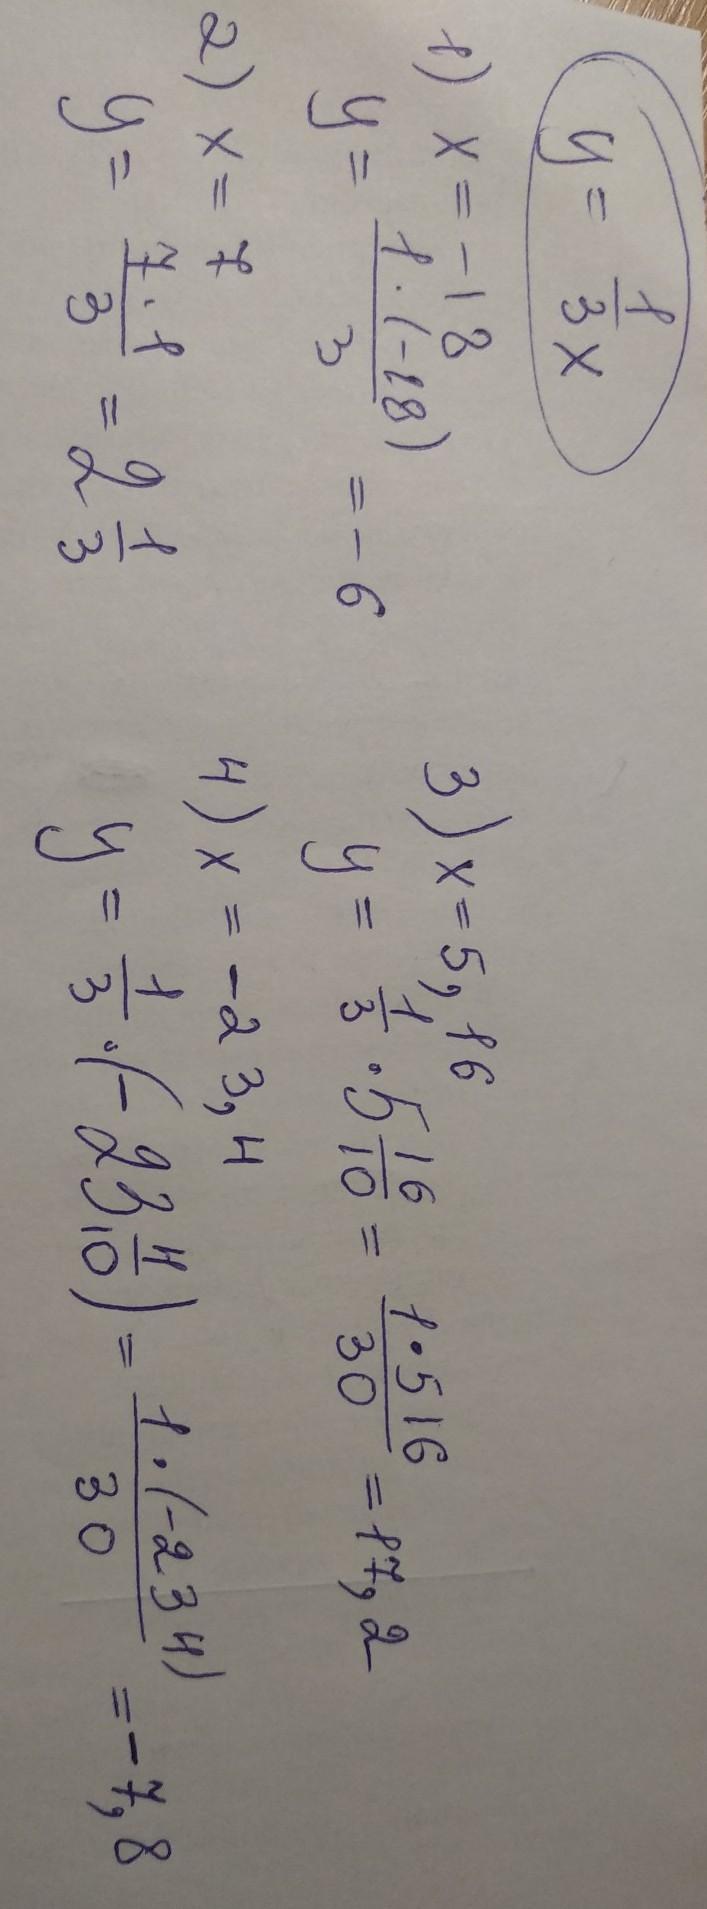 y = 1/3 x
1) x = -18
y = 1·(-18)/3 = -6
2) x = 7
y = 7·1/3 = 2 1/3
3) x = 5,16
y = 1/3 · 5 16/10 = 1·516/30 = 17,2
4) x = -23,4
y = 1/3 · (-23 4/10) = 1·(-234)/30 = -7,8